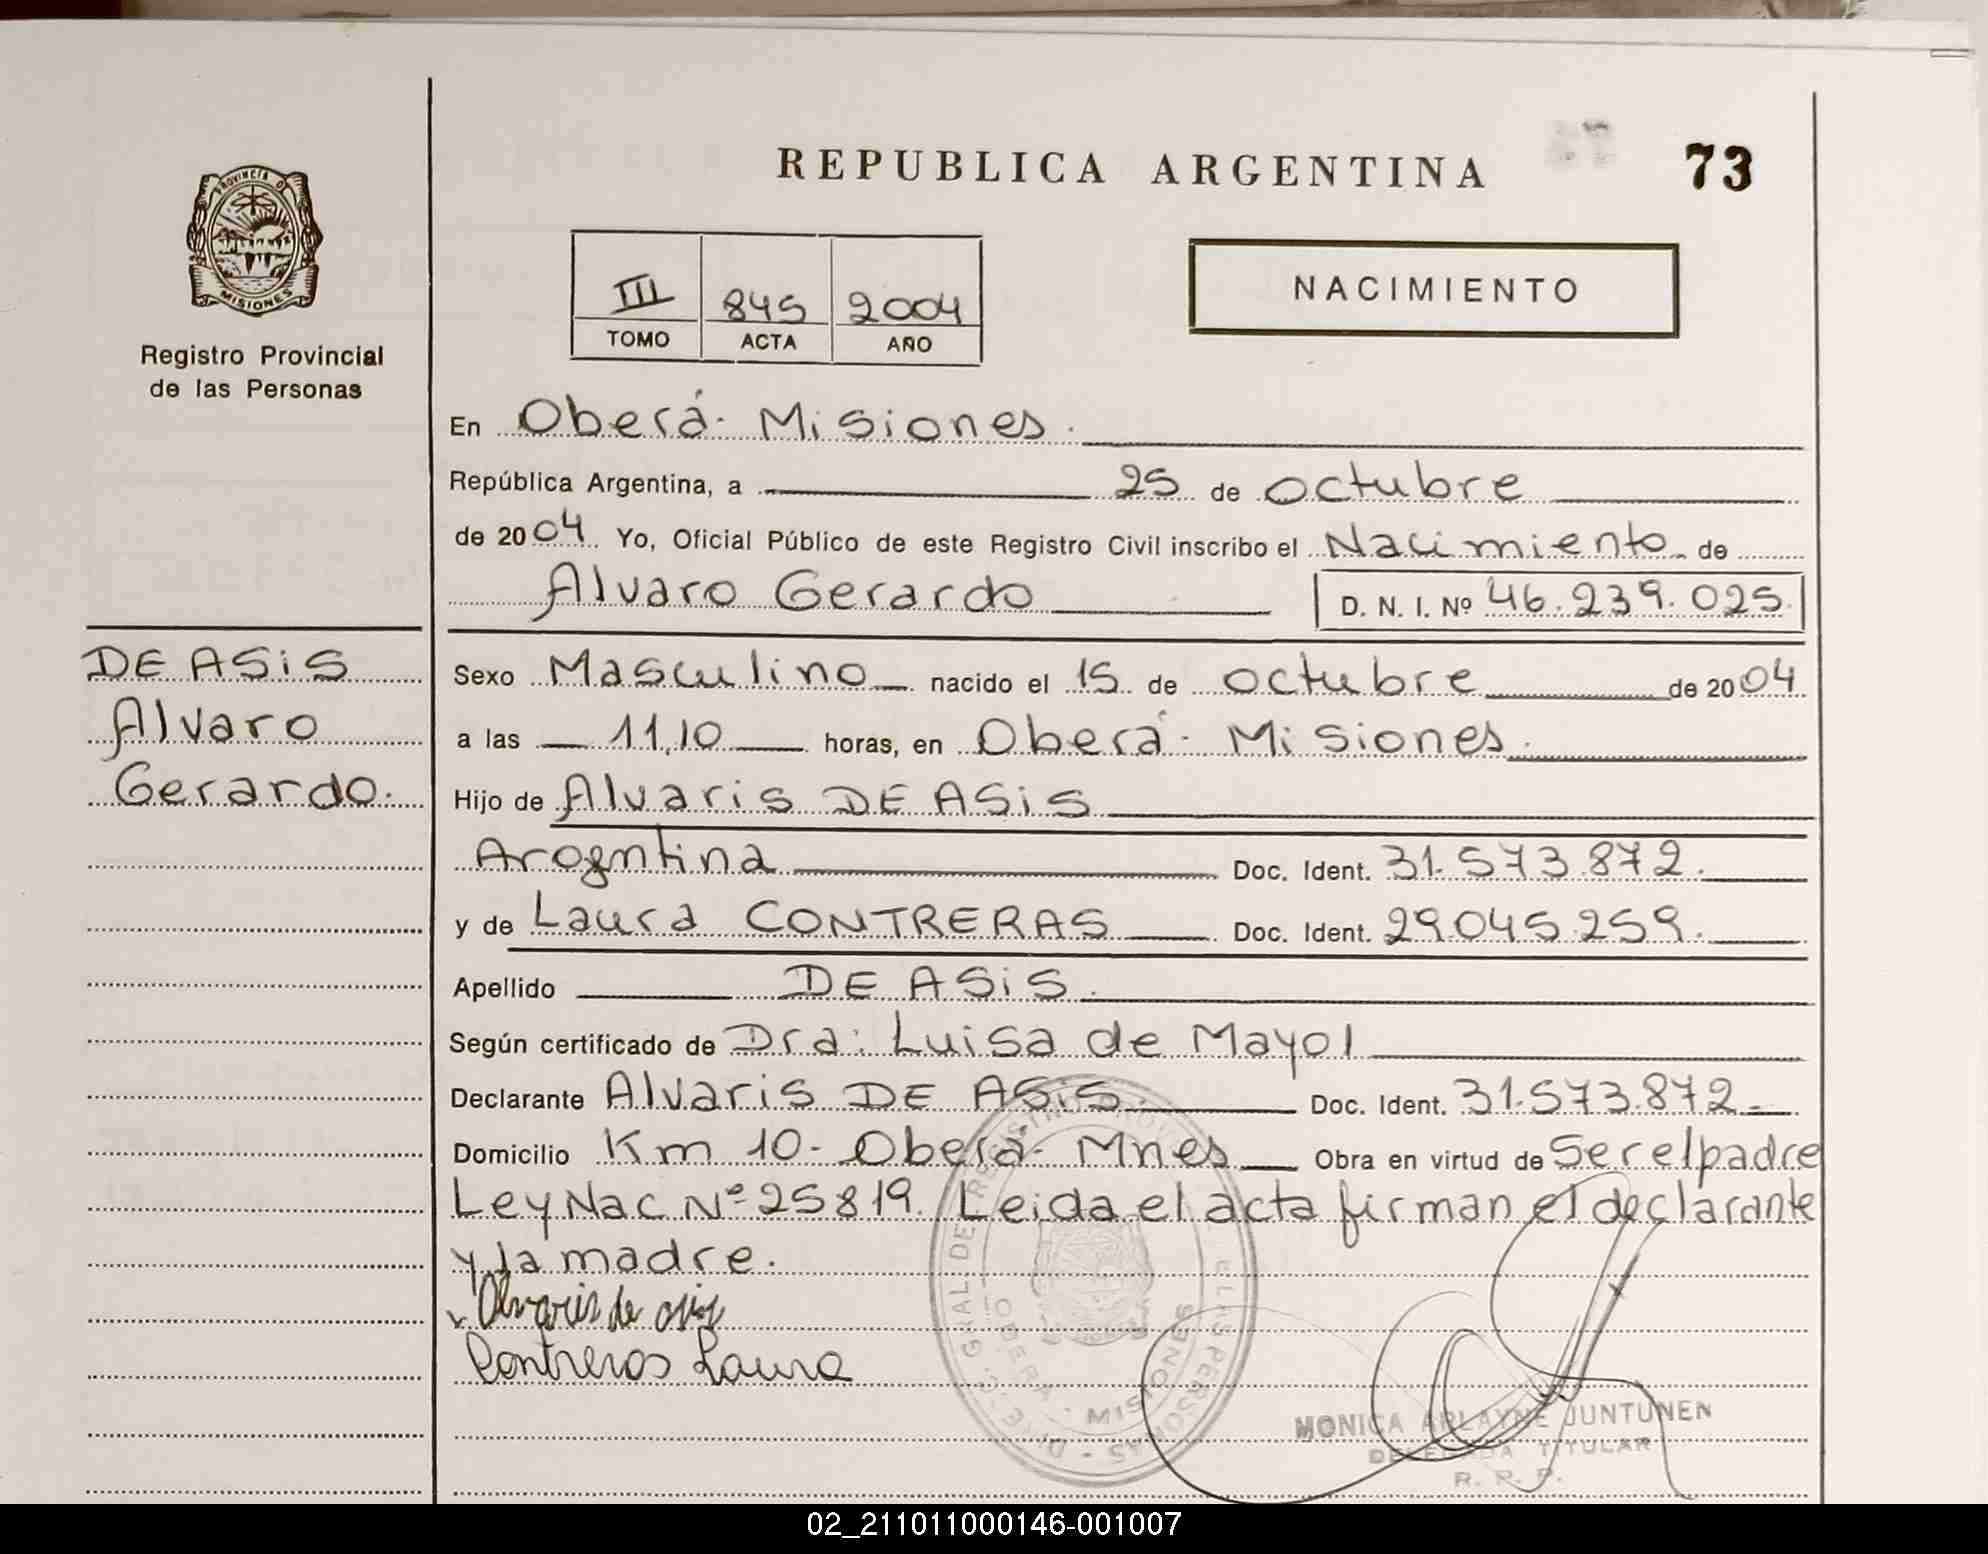 REPUBLICA ARGENTINA 73
PROVINCIA DE
MISIONES
Registro Provincial
de las Personas
III 845 2004
TOMO ACTA AÑO
NACIMIENTO
En Oberá - Misiones.
República Argentina, a 25 de octubre
de 2004 Yo, Oficial Público de este Registro Civil inscribo el Nacimiento de
Alvaro Gerardo D. N. I. Nº 46.239.025
DE ASiS
Alvaro
Gerardo.
Sexo Masculino nacido el 15 de octubre de 2004
a las 11,10 horas, en Oberá - Misiones.
Hijo de Alvaris DE ASiS
Arogntina Doc. Ident. 31.573.872.
y de Laura CONTRERAS Doc. Ident. 29.045.259.
Apellido DE ASiS.
Según certificado de Dra: Luisa de Mayol
Declarante Alvaris DE ASiS. Doc. Ident. 31.573.872
Domicilio Km 10 - Oberá - Mnes Obra en virtud de Ser el padre
Ley Nac Nº 25819. Leida el acta firman el declarante
y la madre.
Alvaris de asis
Contreras Laura
OBERA - MISIONES
MONICA ARLAYNE JUNTUNEN
DELEGADA TITULAR
R. R. P.
02_211011000146-001007